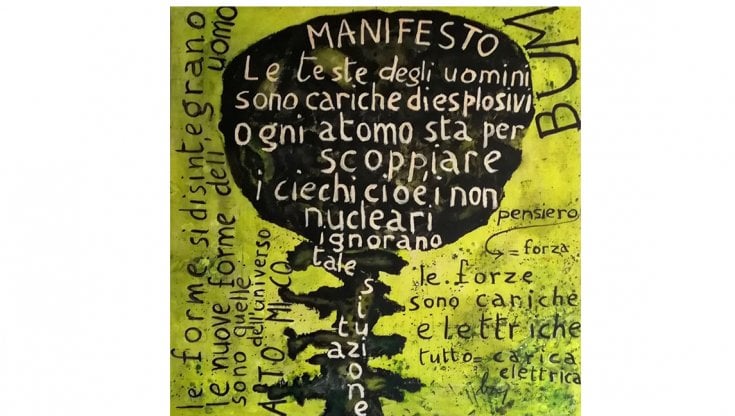 MANIFESTO
Le teste degli uomini
sono cariche di esplosivi
ogni atomo sta per
scoppiare
i ciechi cioè i non
nucleari
ignorano
tale
situazione
BUM
le forme si disintegrano
le nuove forme dell'uomo
sono quelle
dell'universo
ATOMICO
pensiero
= forza
le forze
sono cariche
elettriche
tutto = carica
elettrica